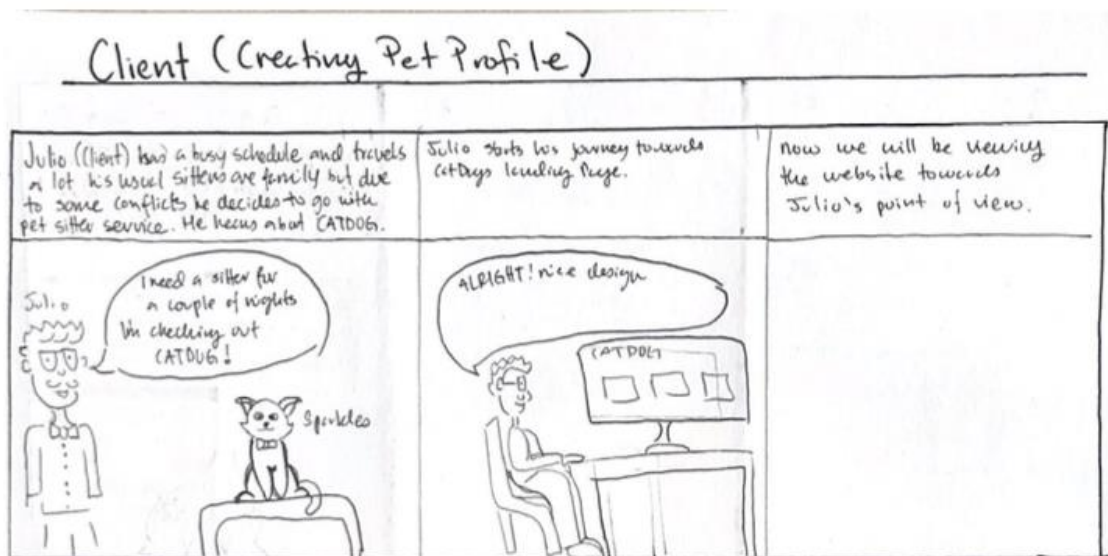 Client (Creating Pet Profile)
Julio (Client) has a busy schedule and travels
a lot his usual sitters are family but due
to some conflicts he decides to go with
pet sitter service. He hears about CATDOG.
Julio starts his journey towards
CatDogs landing Page.
now we will be viewing
the website towards
Julio's point of view.
Julio
I need a sitter for
a couple of nights
I'm checking out
CATDOG!
Sparkles
ALRIGHT! nice design
CATDOG